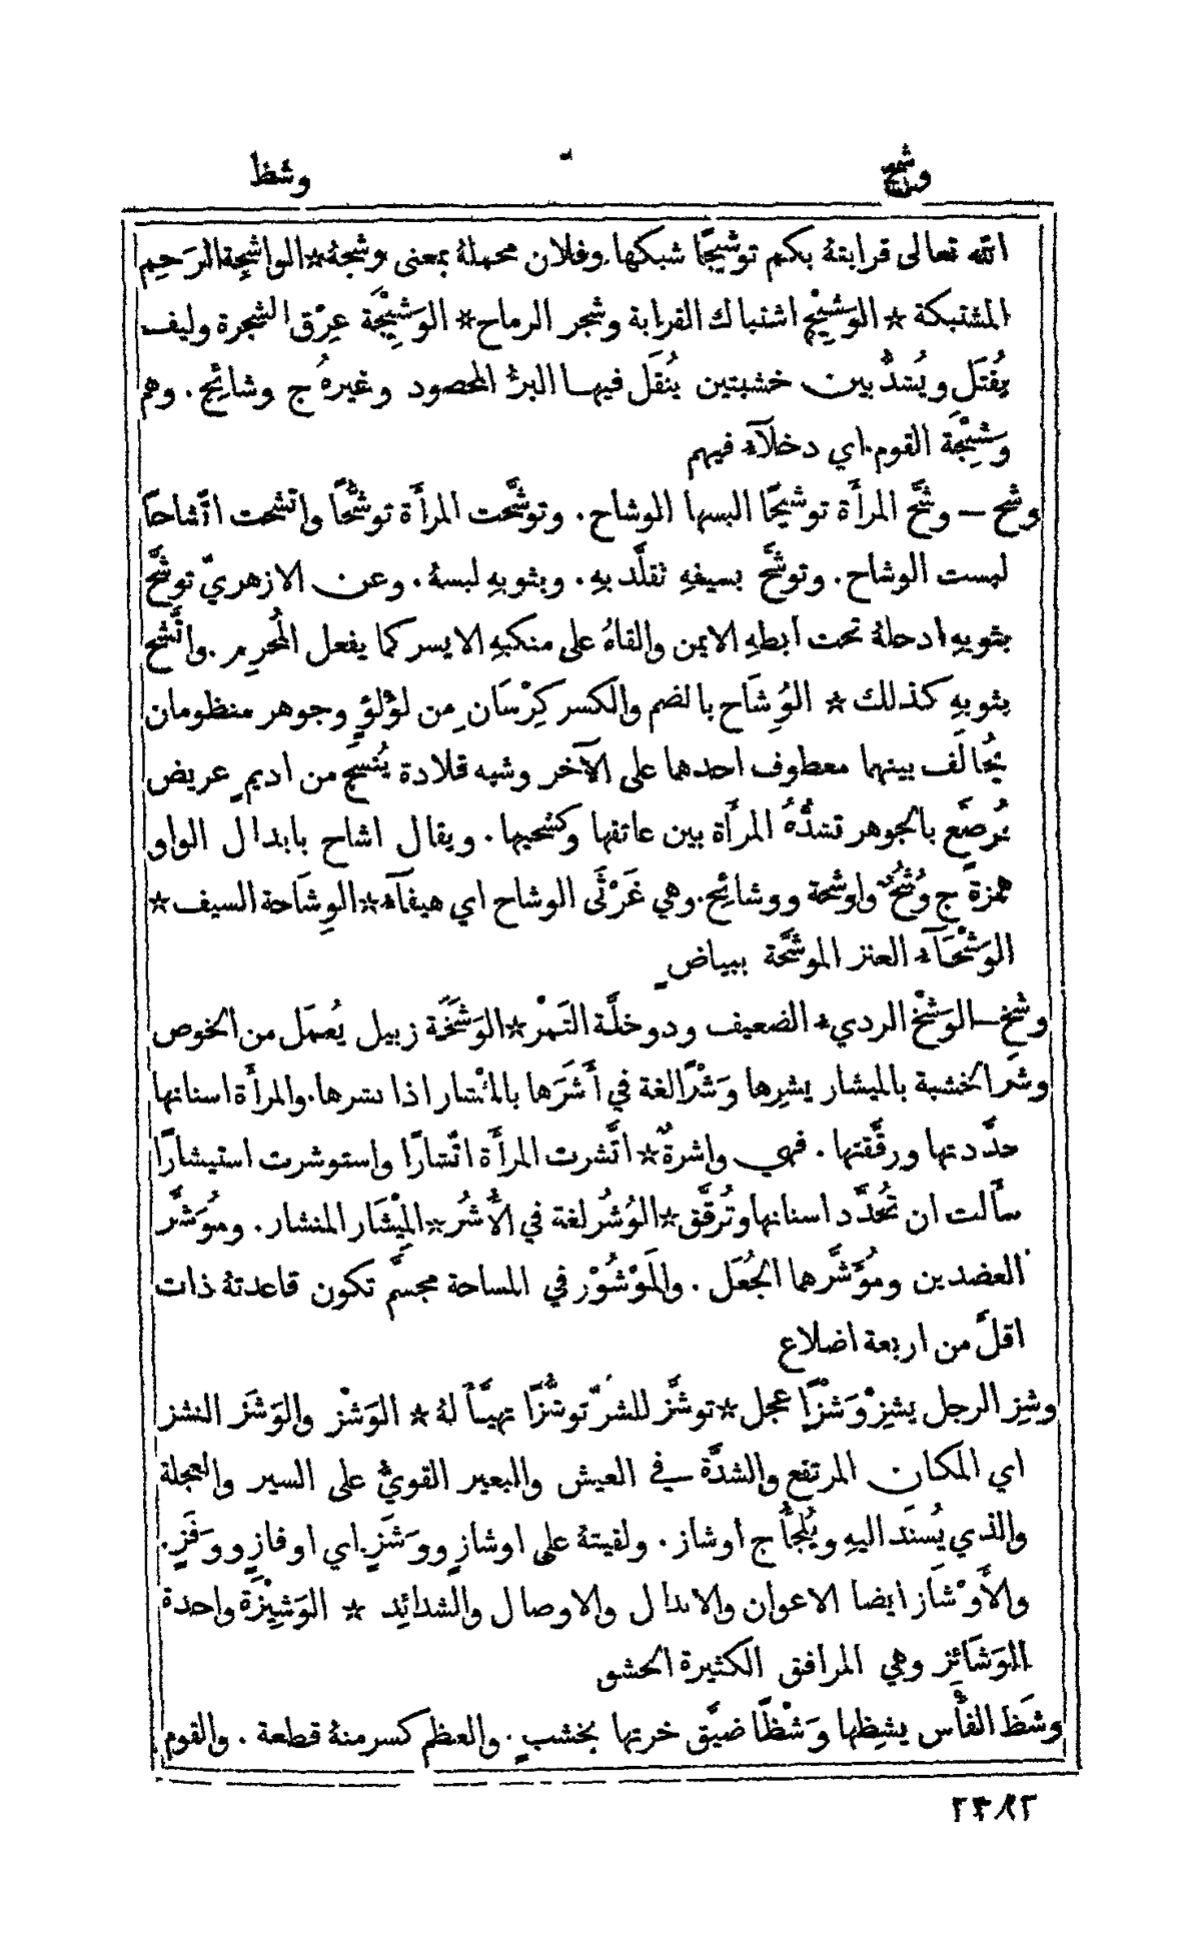 وشج
وشظ
الله تعالى قرابتهُ بكم توشيجًا شبكها. وفلان محملهُ بمعنى وشجهُ☆الواشِجة الرَحِم
المشتبكة ☆ الوَشِيْج اشتباك القرابة وشجر الرماح☆ الوَشِيْجَة عِرْق الشجرة وليف
يُفتَل ويُشدُّ بين خشبتين يُنقَل فيهـا البرُّ المحصود وغيرهُ ج وشائِج . وهم
وَشِيْجَة القوم اي دخلآء فيهم
وشح — وشَّح المرأَة توشيحًا البسها الوشاح . وتوشَّحت المرأَة توشُّحًا واتَّشحت اتّشاحًا
لبست الوشاح . وتوشَّح بسيفهِ تقلَّد بهِ . وبثوبهِ لبسهُ . وعن الازهريّ توشَّح
بثوبهِ ادخلهُ تحت ابطهِ الايمن والقاهُ على منكبهِ الايسر كما يفعل المُحرِم . واتَّشح
بثوبهِ كذلك ☆ الوُِشَاح بالضم والكسر كِرْسَانِ من لؤلؤٍ وجوهر منظومان
يُخالَف بينهما معطوف احدهما على الآخر وشبه قلادة يُنسَج من اديمٍ عريض
يُرصَّع بالجوهر تشدُّهُ المرأَة بين عاتقها وكشحيها . ويقال اشاح بابدال الواو
همزة ج وُشُحٌ واوشحة ووشائِح. وهي غَرْثَى الوشاح اي هيفآء☆الوِشَاحة السيف☆
الوَشْحَآء العنز الموشَّحة ببياضٍ
وشخ—الوَشْخ الرديء الضعيف ودوخلَّة التَمْر☆الوَشَخَة زبيل يُعمَل من الخوص
وشَر الخشبة بالميشار يشِرها وَشْرًا لغة في أَشَرَها بالمئْشار اذا نشرها. والمرأَة اسنانها
حدَّدتها ورقَّقتها . فهي واشرةٌ☆ اتَّشرت المرأَة اتّشارًا واستوشرت استيشارًا
سأَلت ان تُحدَّد اسنانها وتُرقَّق☆الوُشُر لغة في الأُشُر☆المِيْشَار المنشار . ومُوَشَّر
العضدين ومُؤَشَّرهما الجُعَل . والمَوْشُوْر في المساحة مجسَّم تكون قاعدتهُ ذات
اقلَّ من اربعة اضلاع
وشِز الرجل يشِزُ وَشْزًا عجل☆توشَّز للشرّ توشُّزًا تهيَّأَ لهُ☆ الوَشْز والوَشَز النشز
اي المكان المرتفع والشدَّة في العيش والبعير القويُّ على السير والعجلة
والذي يُسنَد اليهِ ويُلجأُ ج أوشاز . ولقيتهُ على اوشازٍ ووَشَزٍ اي اوفازٍ ووَفَزٍ.
والأَوْشَاز ايضا الاعوان والانذال والاوصال والشدائِد ☆ الوَشِيْزَة واحدة
الوَشَائِز وهي المرافق الكثيرة الحشو
وشَظ الفأْس يشِظها وَشْظًا ضيَّق خرتها بخشبٍ . والعظم كسر منهُ قطعة . والقوم